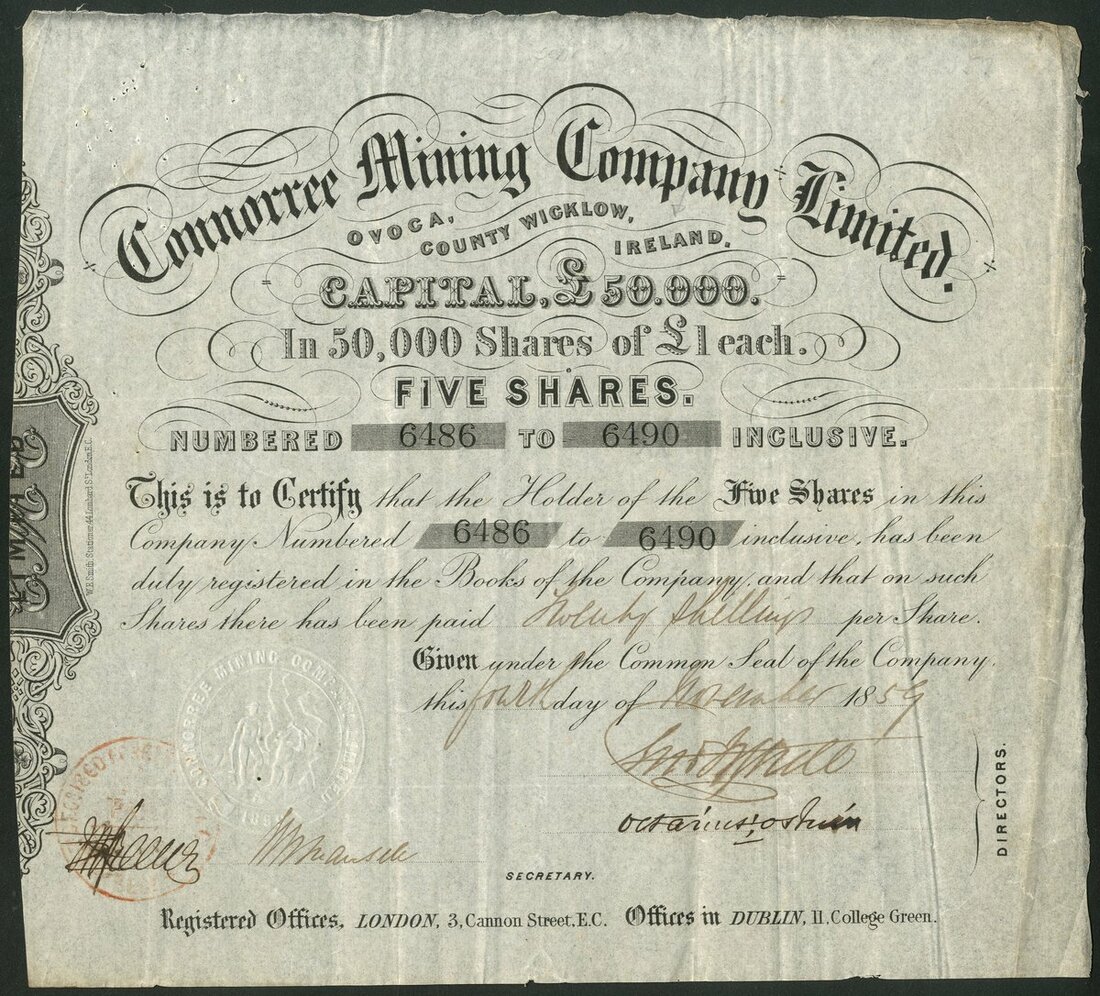 Connorree Mining Company Limited.
OVOCA,
COUNTY WICKLOW,
IRELAND.
CAPITAL, £50.000.
In 50,000 Shares of £1 each.
FIVE SHARES.
NUMBERED 6486 TO 6490 INCLUSIVE.
This is to Certify that the Holder of the Five Shares in this
Company Numbered 6486 to 6490 inclusive, has been
duly registered in the Books of the Company, and that on such
Shares there has been paid Twenty Shillings per Share.
Given under the Common Seal of the Company,
this fourth day of November 1859
CONNORREE MINING COMPANY LIMITED
DIRECTORS.
SECRETARY.
Registered Offices, LONDON, 3, Cannon Street, E.C. Offices in DUBLIN, 11, College Green.
W.H. Smith Stationer 44 Lombard St. London E.C.